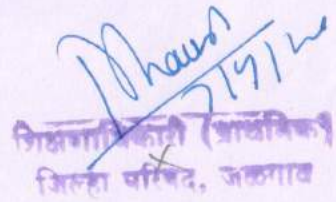 7/9/20
शिक्षणाधिकारी (प्राथमिक)
जिल्हा परिषद, जळगाव